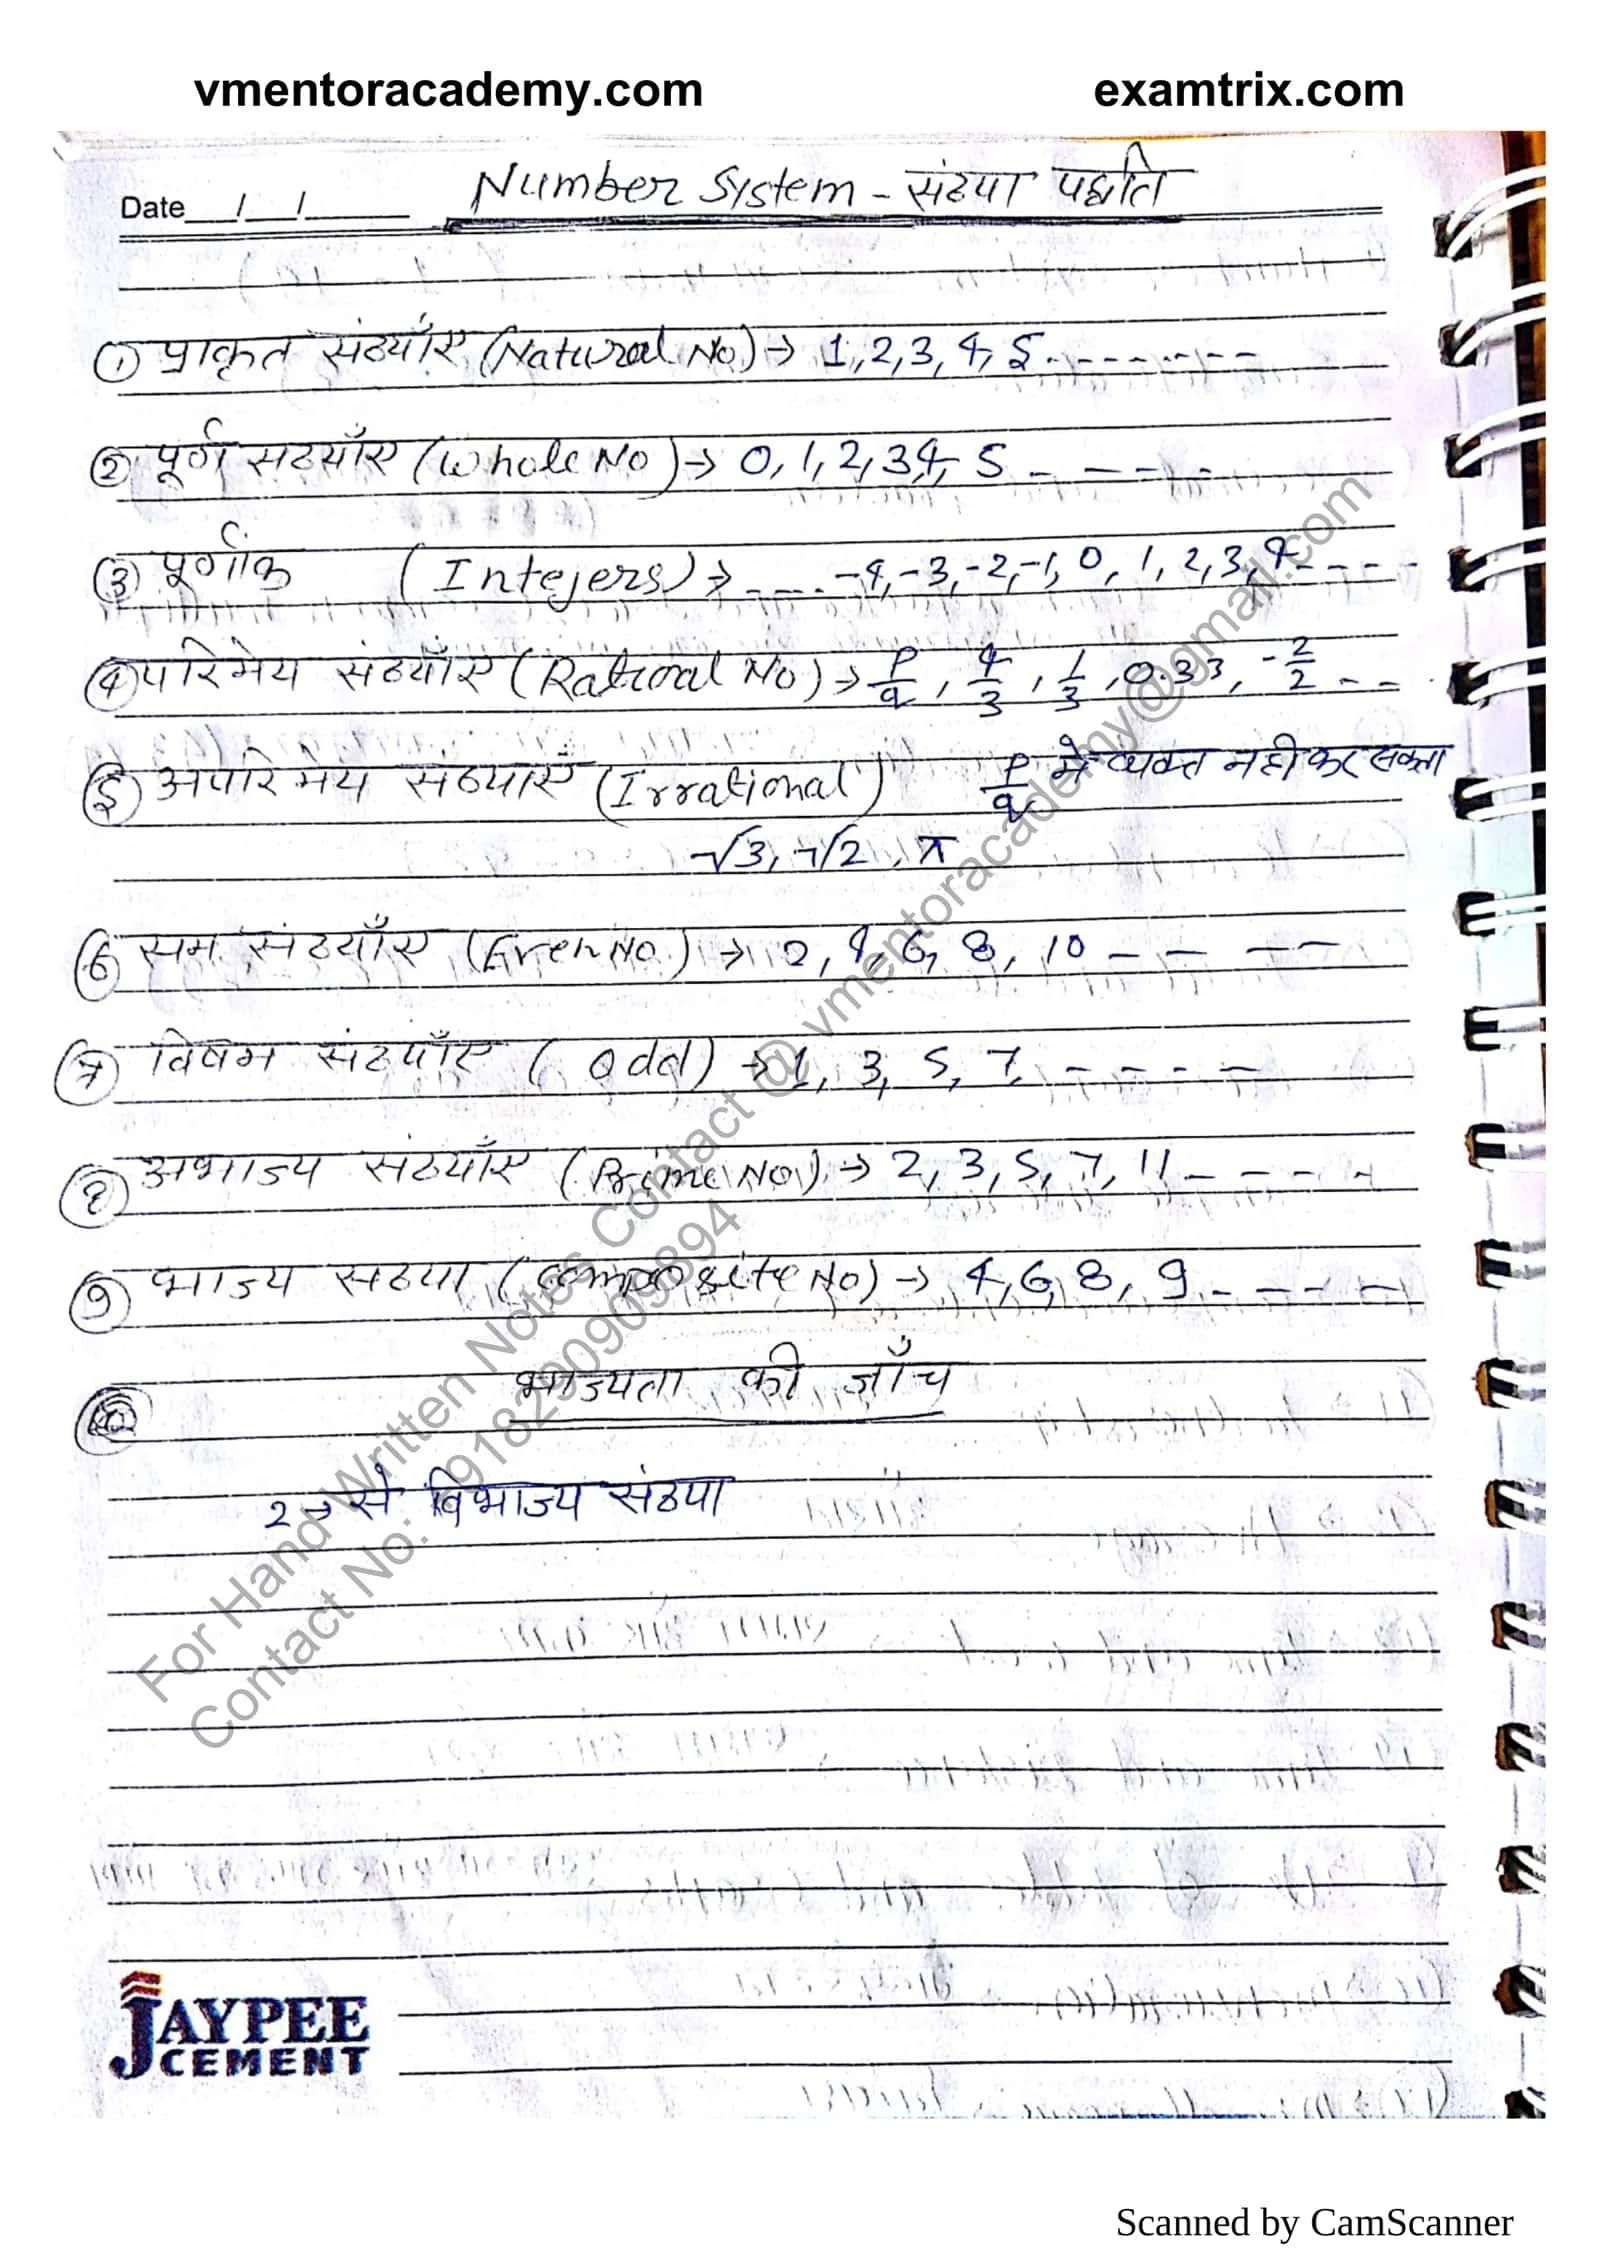 vmentoracademy.com examtrix.com
Date__/__/____ Number System - संख्या पद्धति
① प्राकृत संख्याँए (Natural No) → 1, 2, 3, 4, 5 - - - - - - -
② पूर्ण सख्याँए (Whole No) → 0, 1, 2, 3, 4, 5 - - - - -
③ पूर्णांक (Intejers) → - - - - -4, -3, -2, -1, 0, 1, 2, 3, 4 - - - -
④ परिमेय संख्याँए (Rational No) → p/q, 4/3, 1/3, 0.33, -2/2 - -
⑤ अपरिमेय संख्याएँ (Irrational) p/q मे व्यक्त नही कर सकता
√3, √2, π
⑥ सम संख्याँए (Even No.) → 2, 4, 6, 8, 10 - - - -
⑦ विषम संख्याँए (Odd) → 1, 3, 5, 7, - - - -
⑧ अभाज्य संख्याँए (Prime No) → 2, 3, 5, 7, 11 - - - -
⑨ भाज्य सख्या (Composite No) → 4, 6, 8, 9 - - - - -
भाज्यता की जाँच
2 → से विभाज्य संख्या
For Hand Written Notes Contact @ vmentoracademy@gmail.com
Contact No: 918290909894
JAYPEE
CEMENT
Scanned by CamScanner